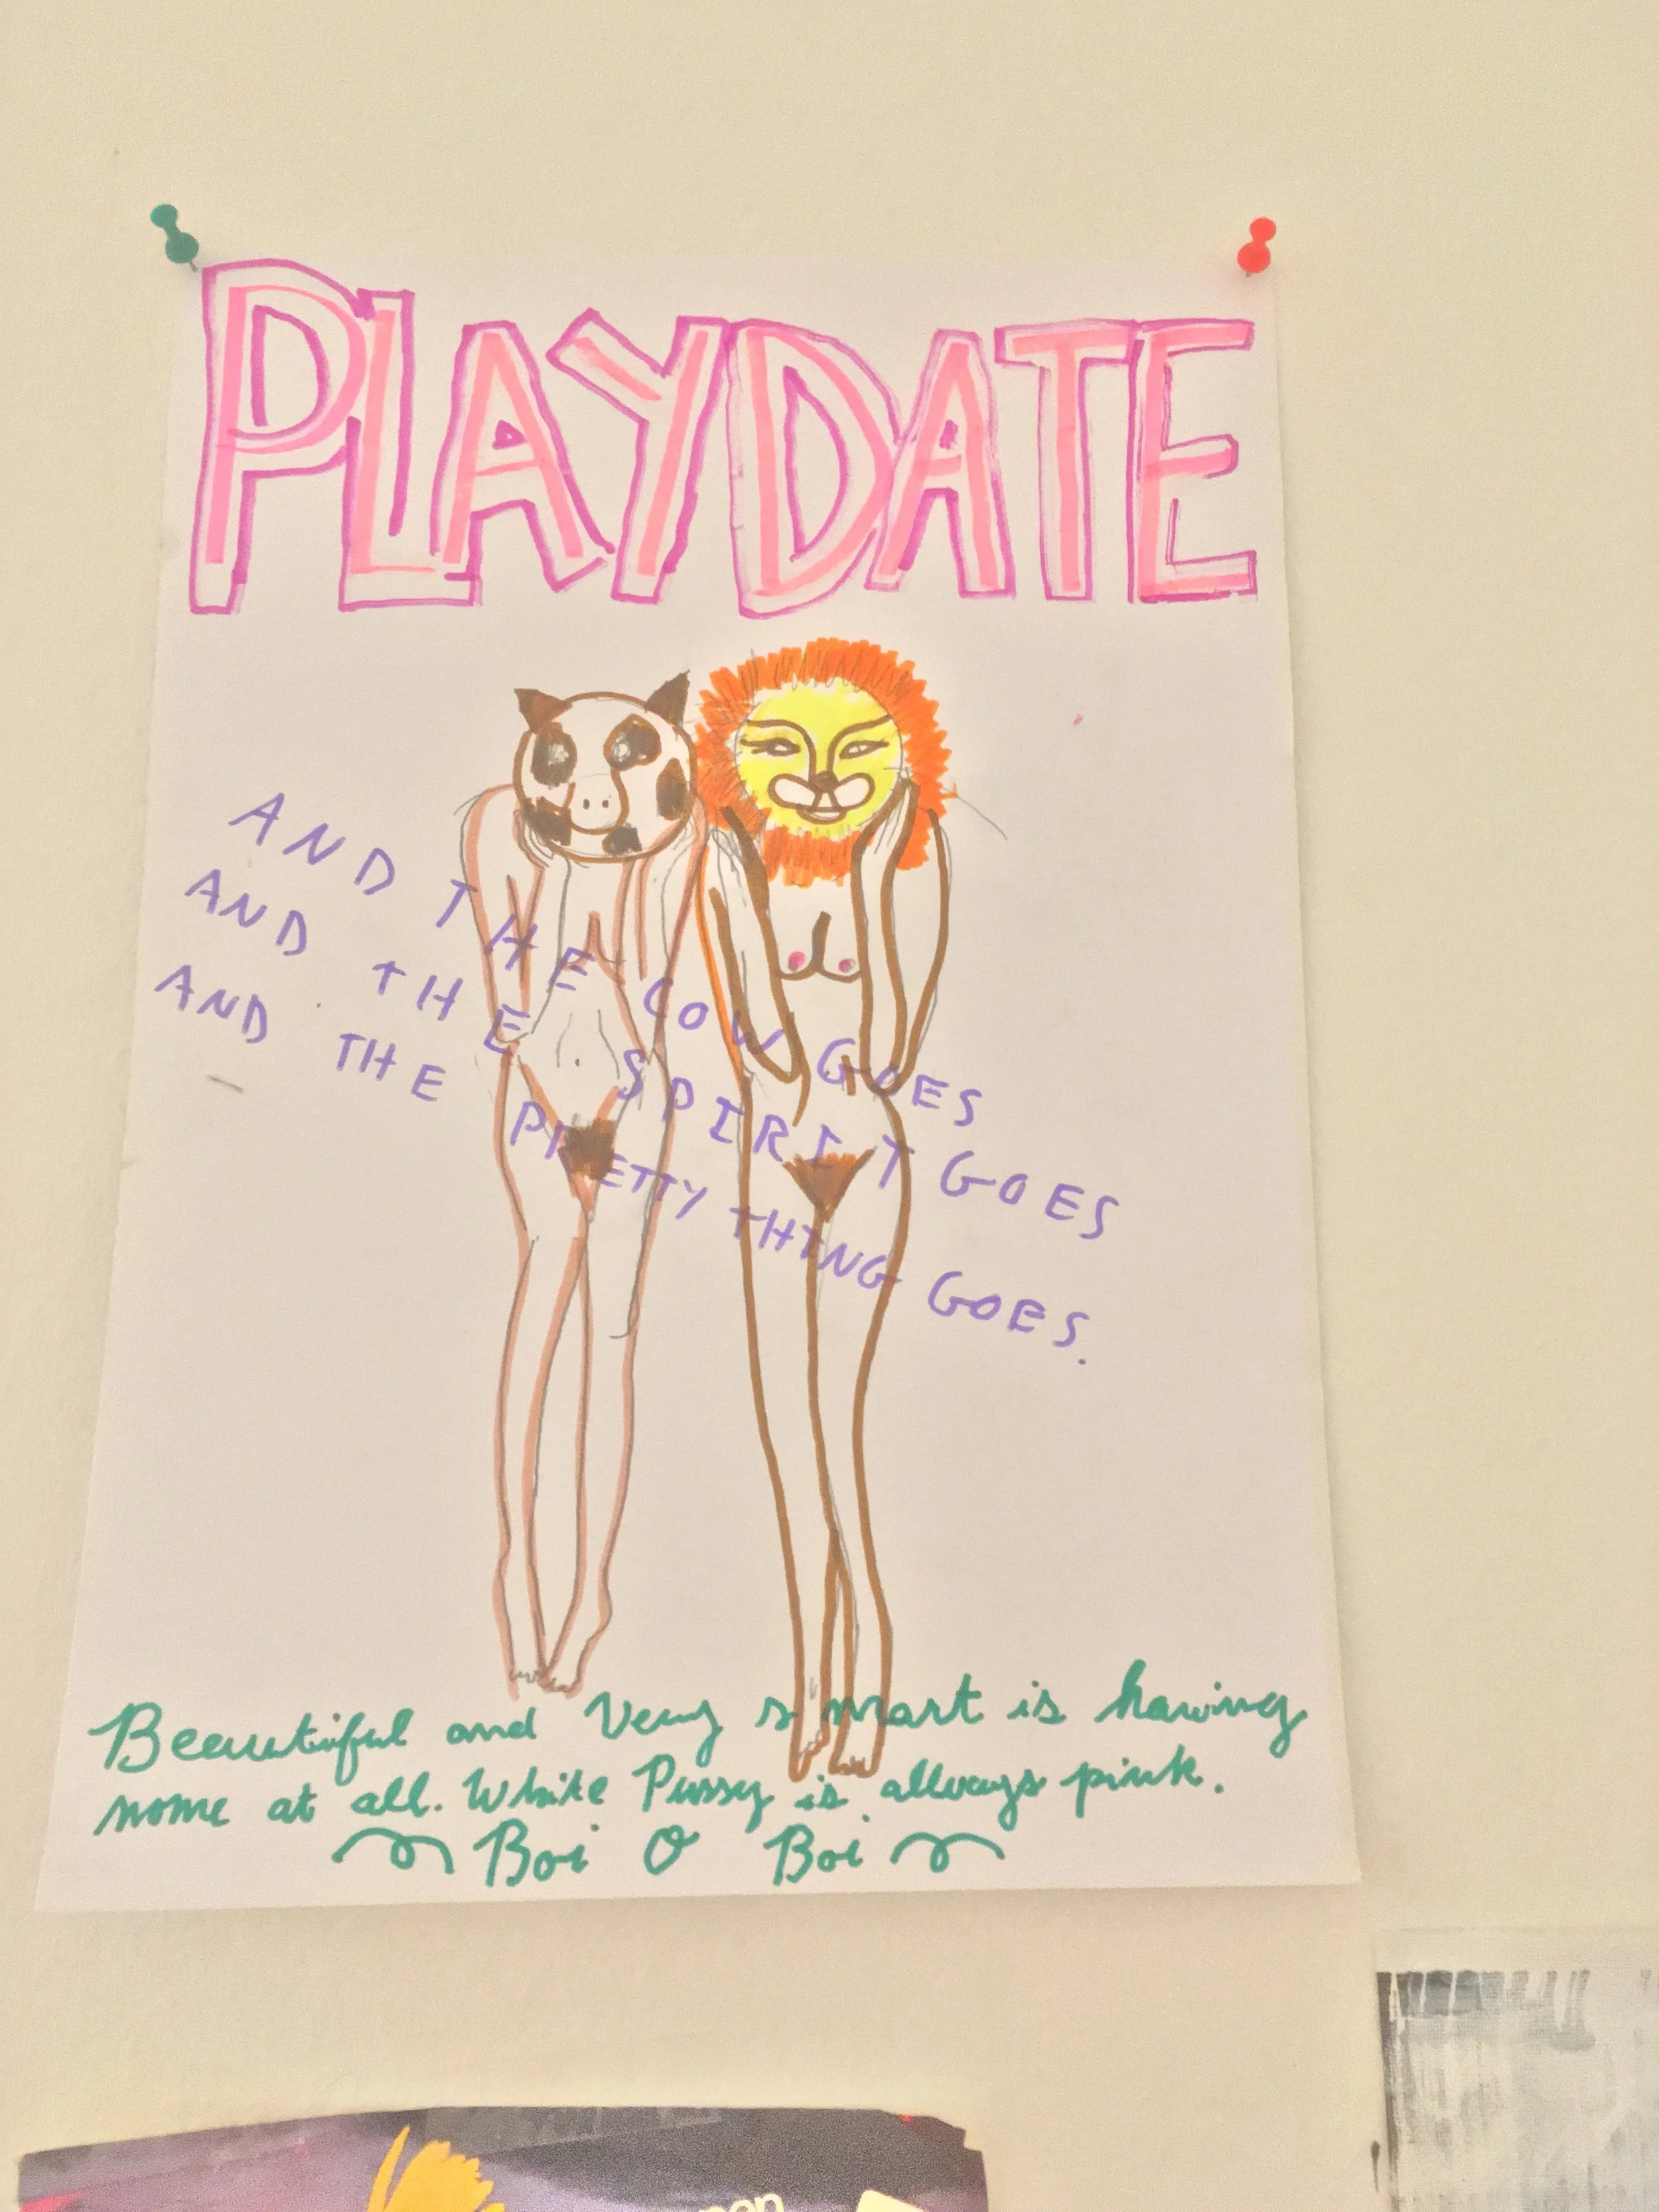 PLAYDATE
AND THE COW GOES
AND THE SPIRIT GOES
AND THE PRETTY THING GOES.
Beautiful and Very smart is having
none at all. White Pussy is allways pink.
Boi O Boi